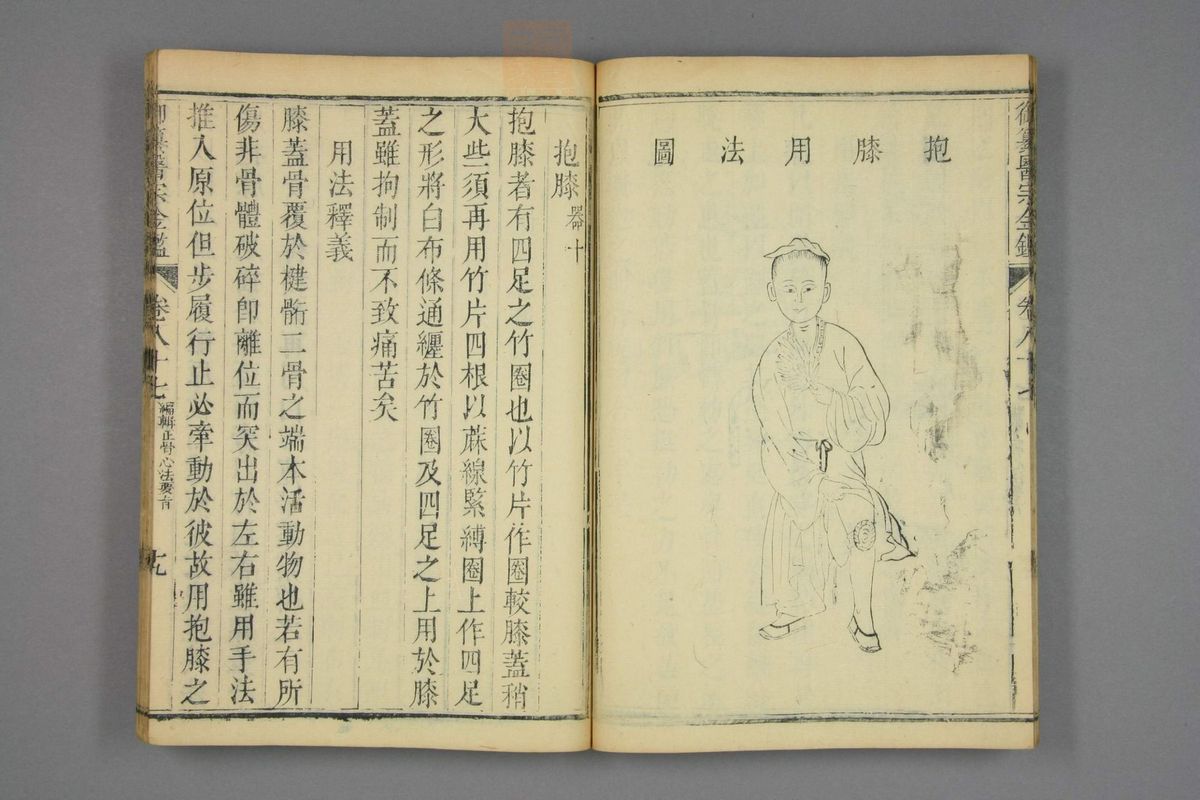 御纂醫宗金鑑
卷八十七
抱膝用法圖
抱膝 器十
抱膝者有四足之竹圈也以竹片作圈較膝蓋稍
大些須再用竹片四根以蔴線緊縛圈上作四足
之形將白布條通纏於竹圈及四足之上用於膝
蓋雖拘制而不致痛苦矣
用法釋義
膝蓋骨覆於楗䯒二骨之端本活動物也若有所
傷非骨體破碎卽離位而突出於左右雖用手法
推入原位但步履行止必牽動於彼故用抱膝之
御纂醫宗金鑑
卷八十七
編輯正骨心法要旨
十九